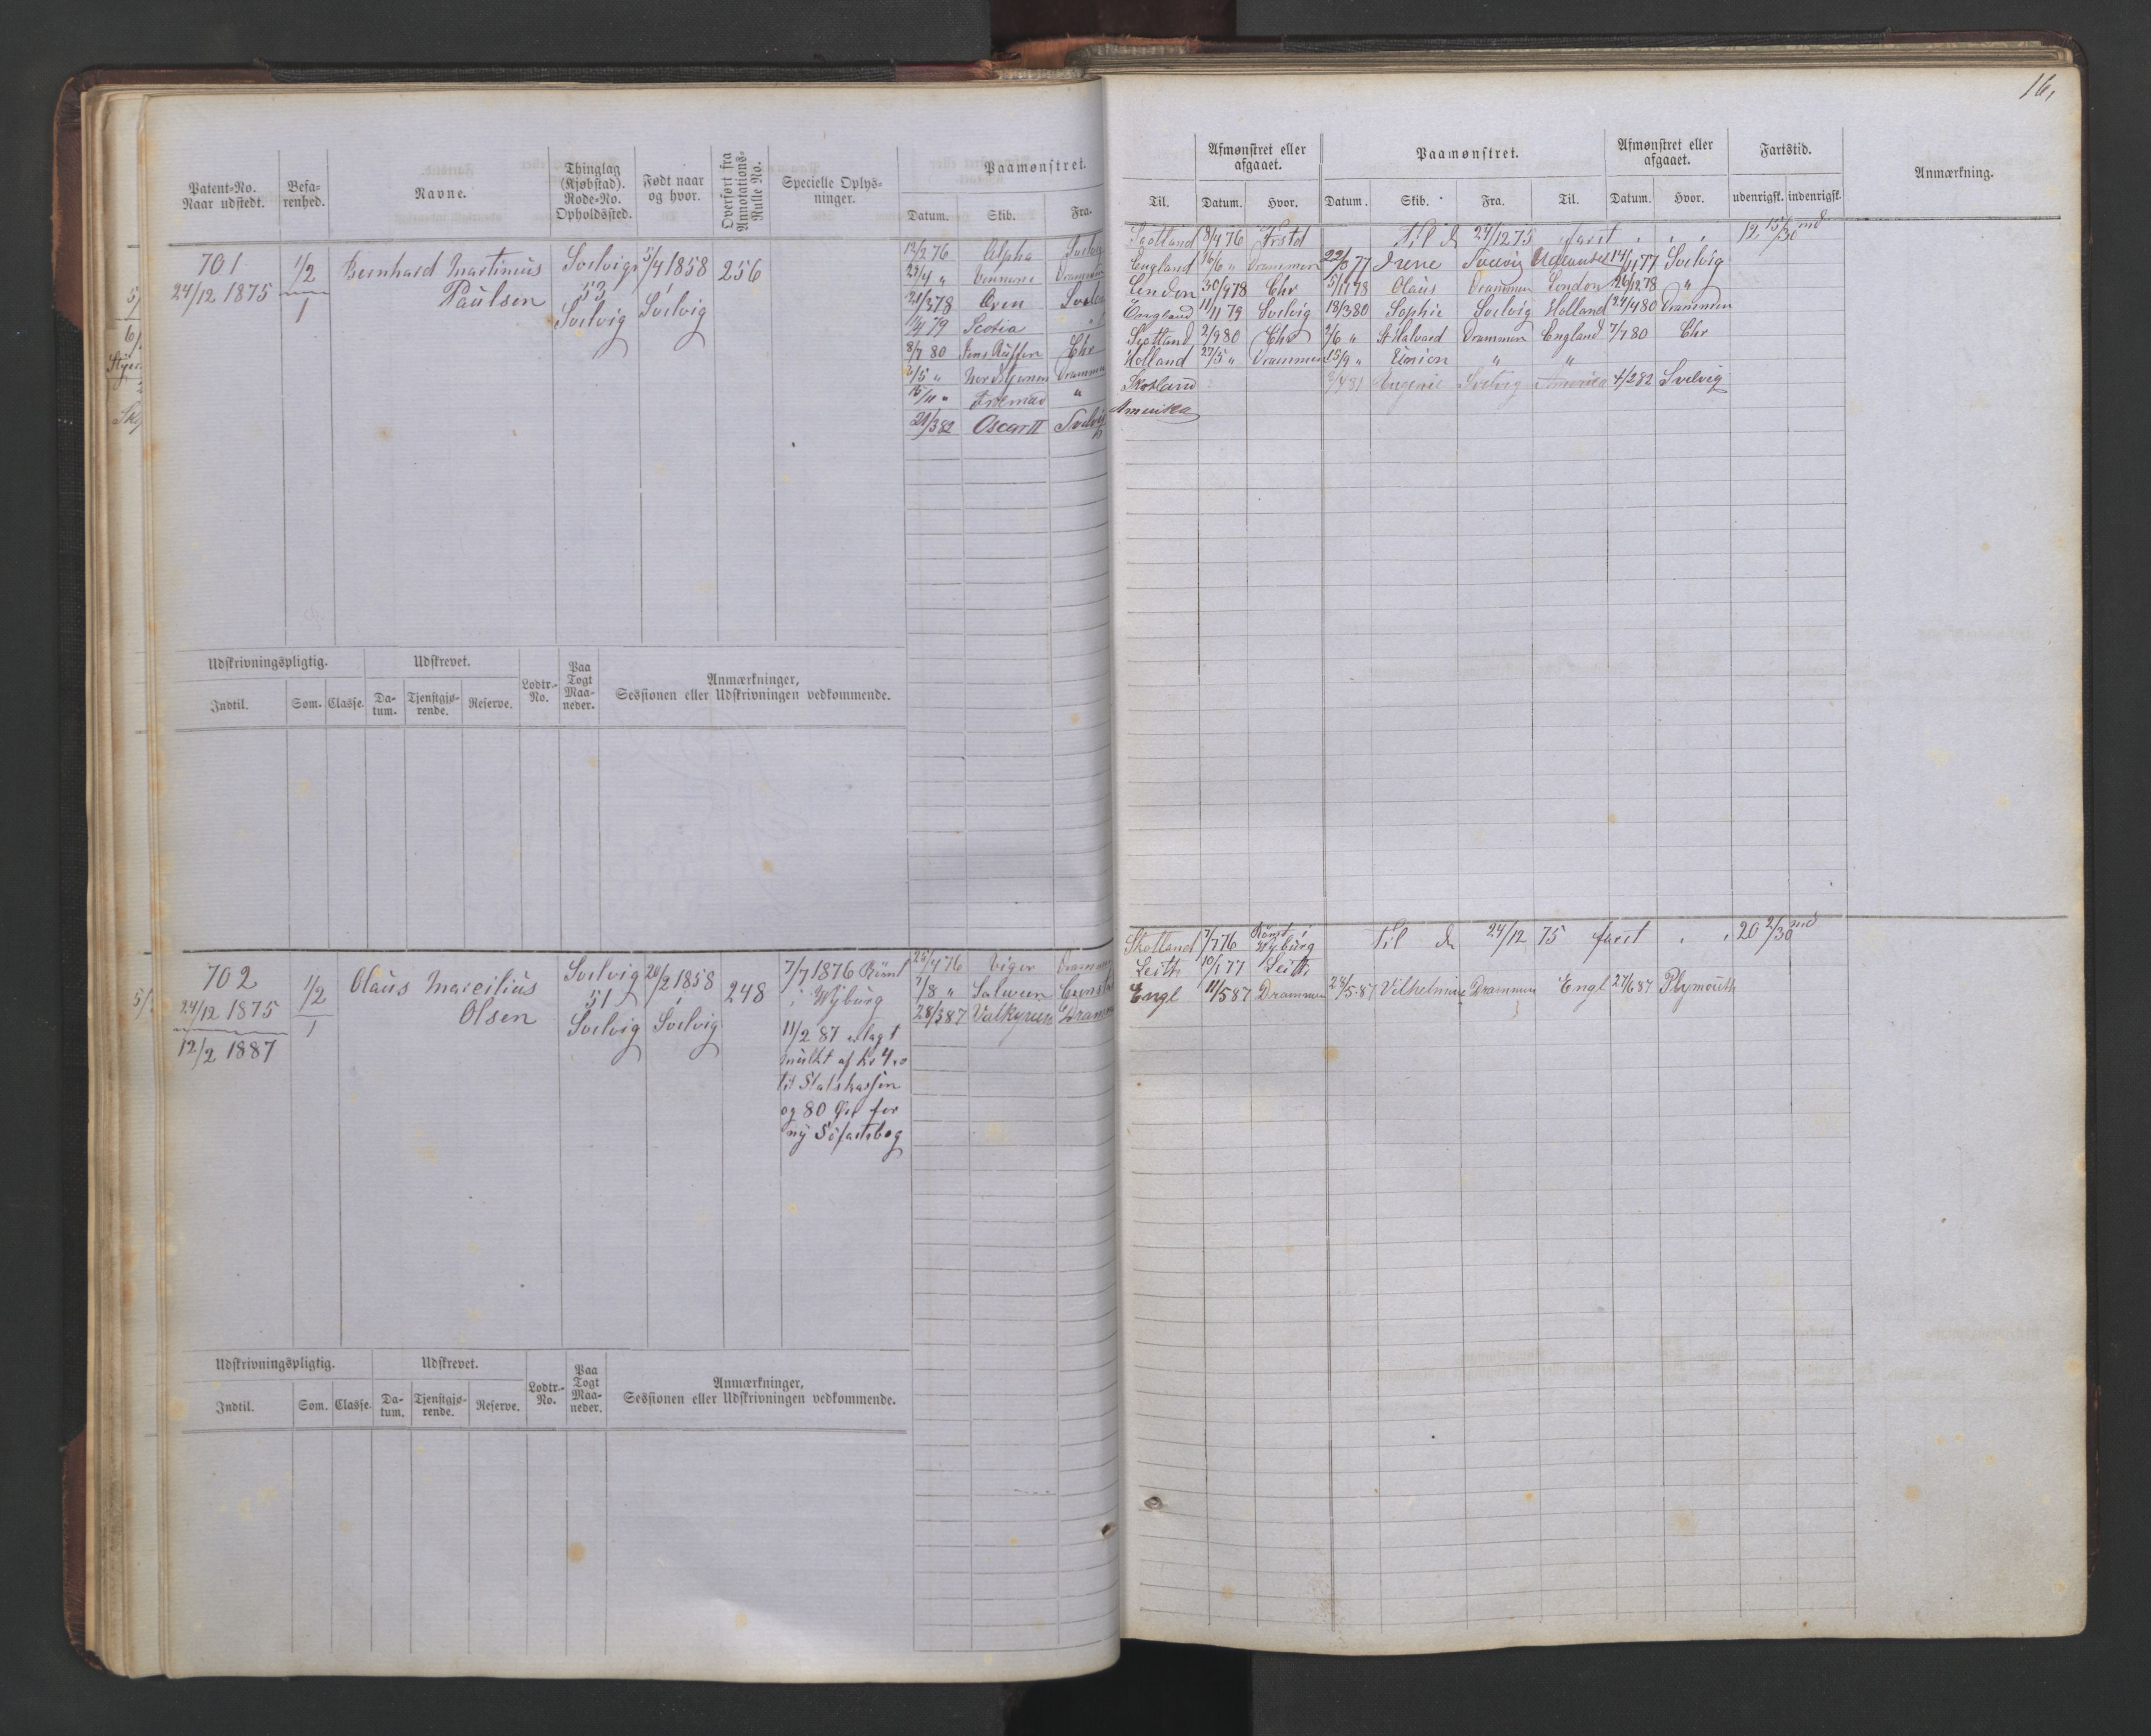 16,
Patent-No. Naar udstedt. Befarenhed. Navne. Thinglag (Kjøbstad). Rode-No. Opholdssted. Født naar og hvor. Overført fra Annotations-Rulle No. Specielle Oplysninger. Paamønstret.
Datum. Skib. Fra.
701 1/2 Bernhard Martinus Svelvig 5/4 1858 256
24/12 1875 1 Paulsen 53
Svelvig Svelvig
12/2 76 Alpha
23/4 "
21/3 78
Scotia "
8/7 80 Chr
2/5 " Drammen
15/11 " "
21/3 82 Oscar II Svelvig
Udskrivningspligtig. Udskrevet. Lodtr.-No. Paa Togt Maaneder. Anmærkninger, Sessionen eller Udskrivningen vedkommende.
Indtil. Som. Classe. Datum. Tjenstgjørende. Reserve.
702 1/2 Olaus Marcilius Svelvig 20/2 1858 248 7/7 1876 Rømt
24/12 1875 1 Olsen 51 i Wyburg
12/2 1887 Svelvig Svelvig
11/2 87 erlagt
mulkt af kr 4.0
til Statskassen
og 80 Øre for
ny Søfartsbog
25/4 76 Viger Drammen
7/8 "
28/3 87 Valkyrien Drammen
Udskrivningspligtig. Udskrevet. Lodtr.-No. Paa Togt Maaneder. Anmærkninger, Sessionen eller Udskrivningen vedkommende.
Indtil. Som. Classe. Datum. Tjenstgjørende. Reserve.
Afmønstret eller afgaaet. Paamønstret. Afmønstret eller afgaaet. Fartstid. Anmærkning.
Til. Datum. Hvor. Datum. Skib. Fra. Til. Datum. Hvor. udenrigsk. indenrigsk.
Scotland 8/4 76 Frstd Til d 24/12 75 faret " " " 12 15/30 md
England 16/6 " Drammen Irene Svelvig 14/11 77 Svelvig
London 30/4 78 Chr 5/11 78 Olaus Drammen London 26/12 78 "
England 11/11 79 Svelvig 18/3 80 Sophie Svelvig Holland 24/4 80 Drammen
Scotland 2/9 80 Chr 2/6 " St Halvard Drammen England 7/7 80 Chr
Holland 27/5 " Drammen 15/9 " Union " "
Skotland Eugenie Svelvig America 4/2 82 Svelvig
Amerika
Skotland 7/7 76 Rømt i Wyburg Til d 24/12 75 faret " " 20 2/30 md
Leith 10/1 77 Leith
Engl 11/5 87 Drammen 28/5 87 Vilhelmine Drammen Engl 27/6 87 Plymouth